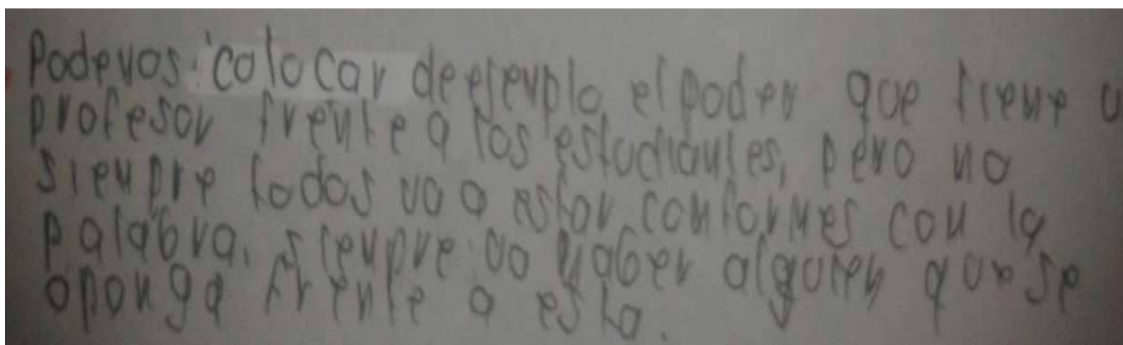 Podemos colocar de ejemplo el poder que tiene u
profesor frente a los estudiantes, pero no
siempre todos va a estar conformes con la
palabra, siempre va haber alguien que se
oponga frente a esta.